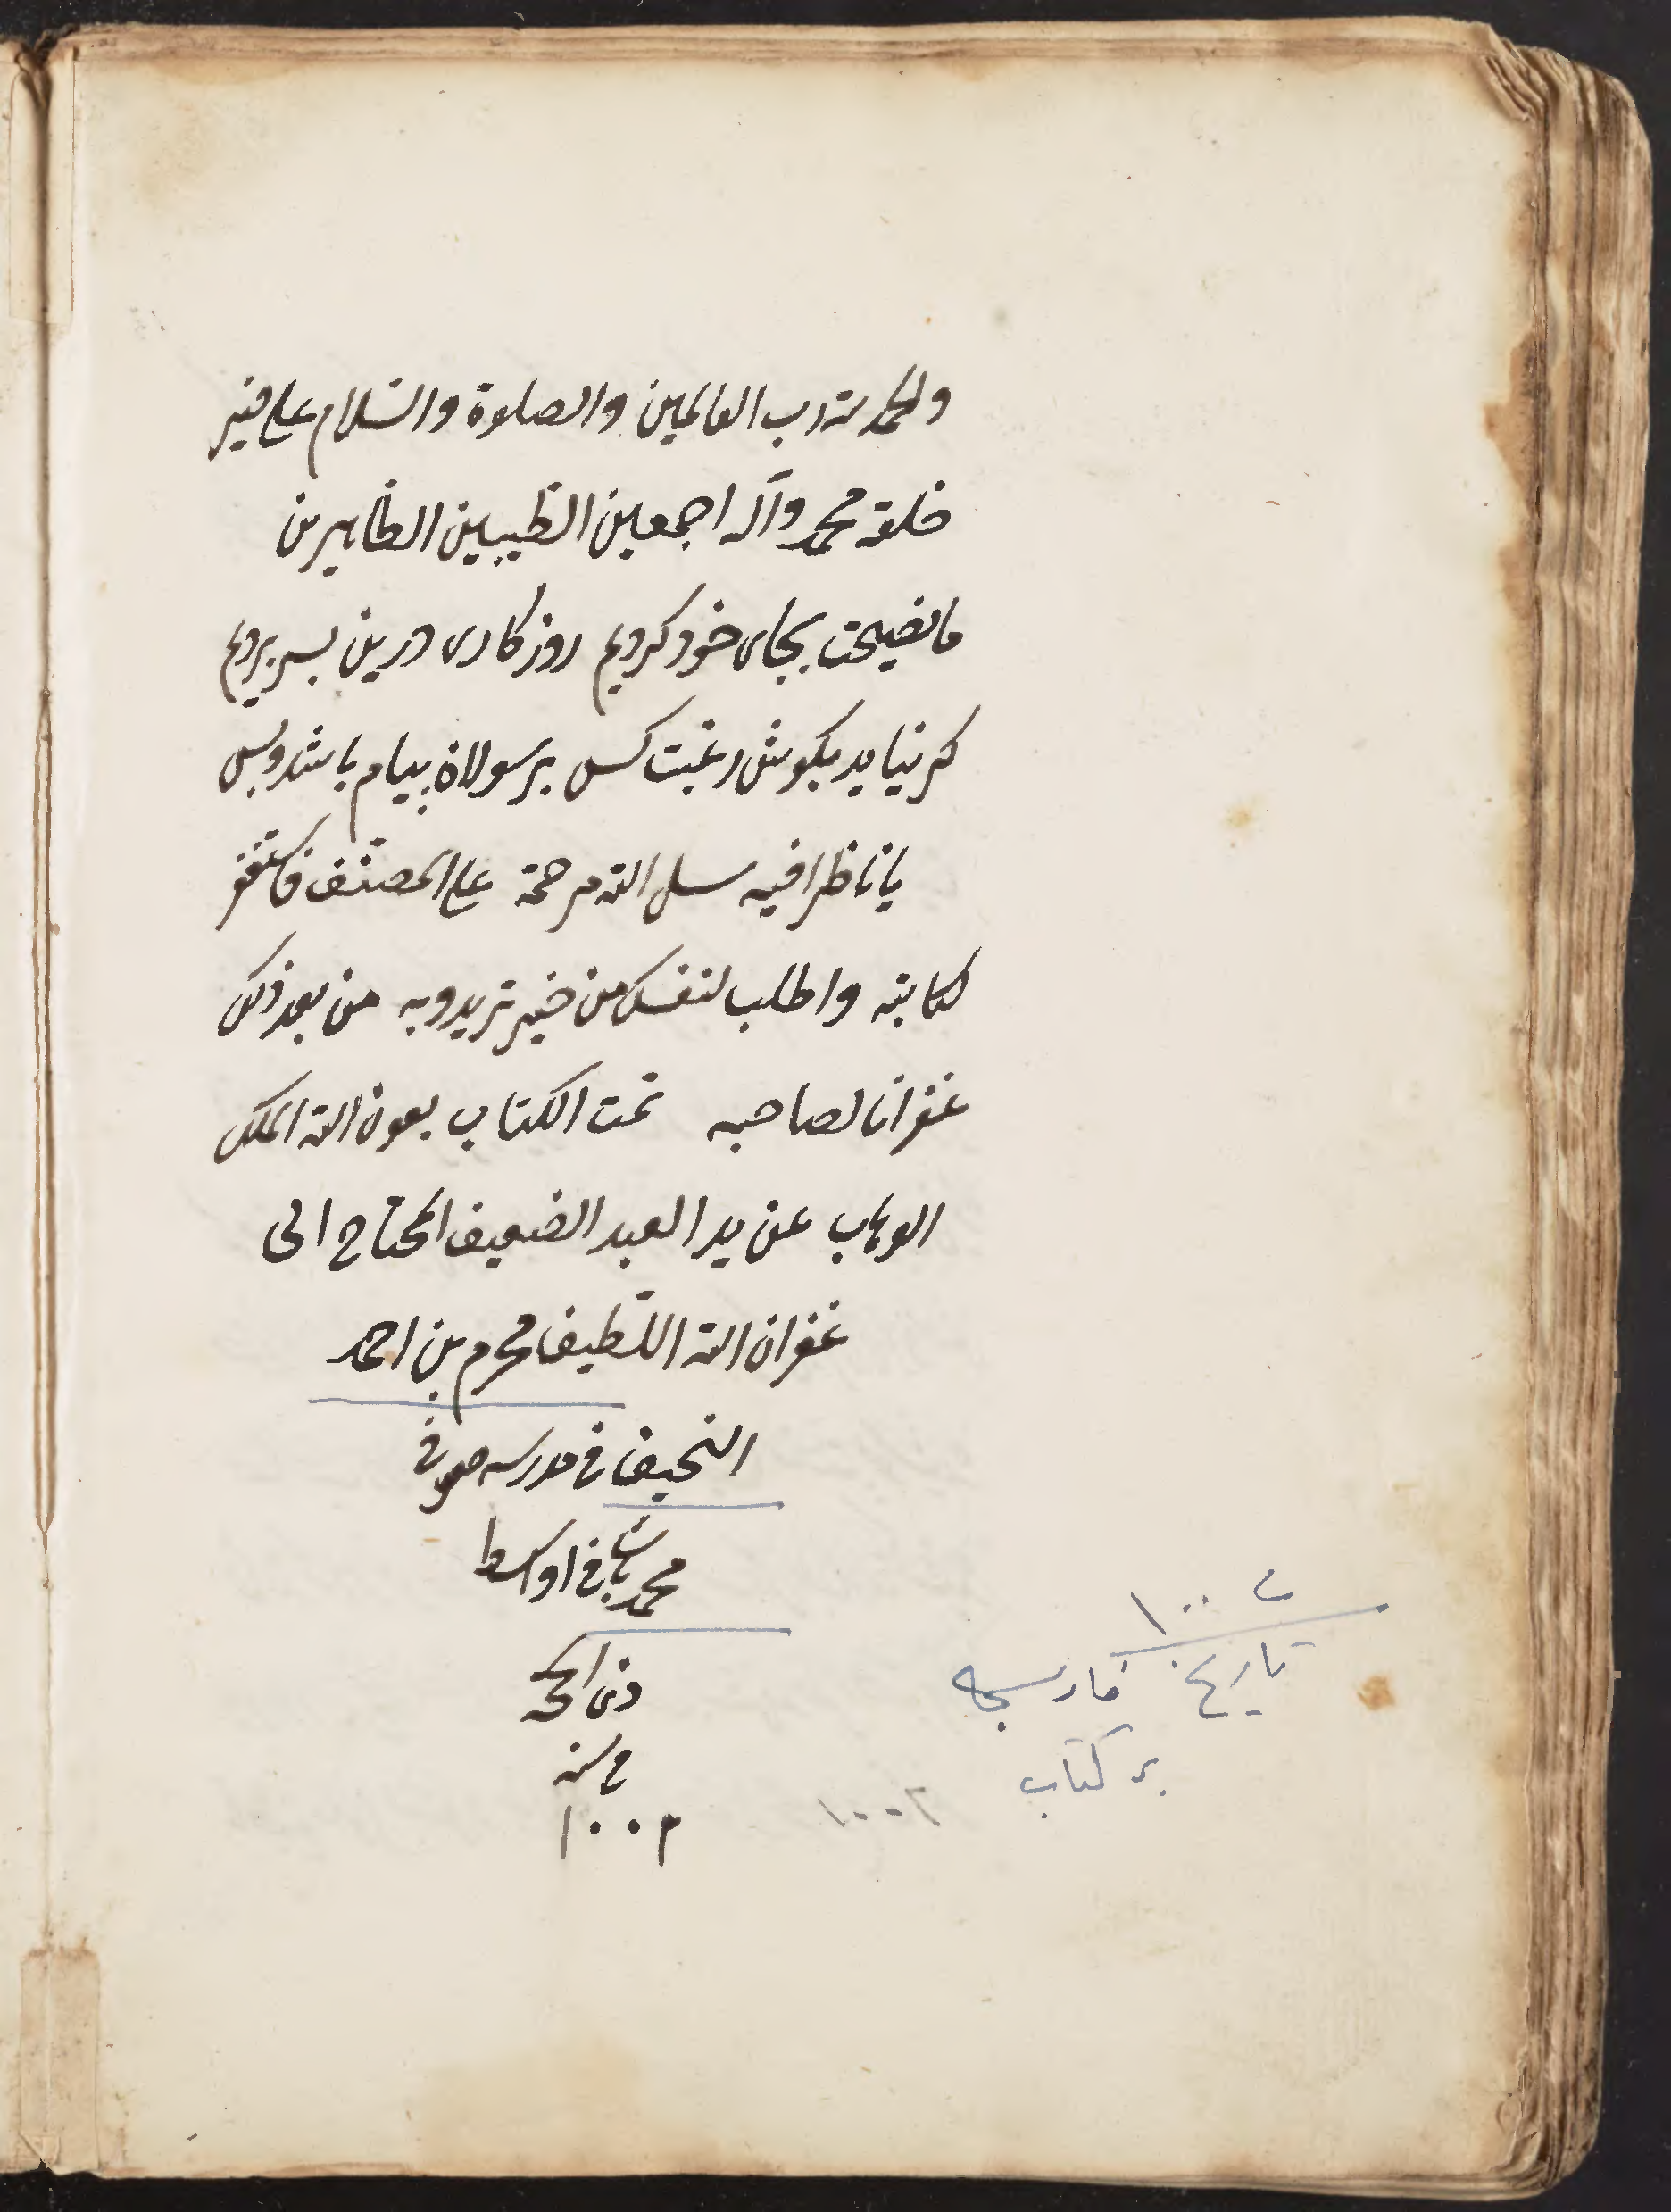 والحمد لله رب العالمين والصلوة والسّلام على خير
خلقه محمد وآله اجمعين الطّيبين الطّاهرين
ما نصيحت بجاى خود كرديم روزكارى درين بسر برديم
كر نيايد بكوش رغبت كس بر رسولان پيام باشد وبس
يا ناظرا فيه سل الله مرحمة على المصنّف واستغفر
لكاتبه واطلب لنفسك من خير تريد به من بعد ذلك
غفرانا لصاحبه تمت الكتاب بعون الله الملك
الوهاب عن يد العبد الضعيف المحتاج الى
غفران الله اللّطيف محرم بن احمد
النحيف فى مدرسه صوفى
محمد پاشا فى اواسط
ذى الحجه
فى سنه
١٠٠٢
١٠٠٢
تاريخ فارسجه
بر كتاب
١٠٠٢